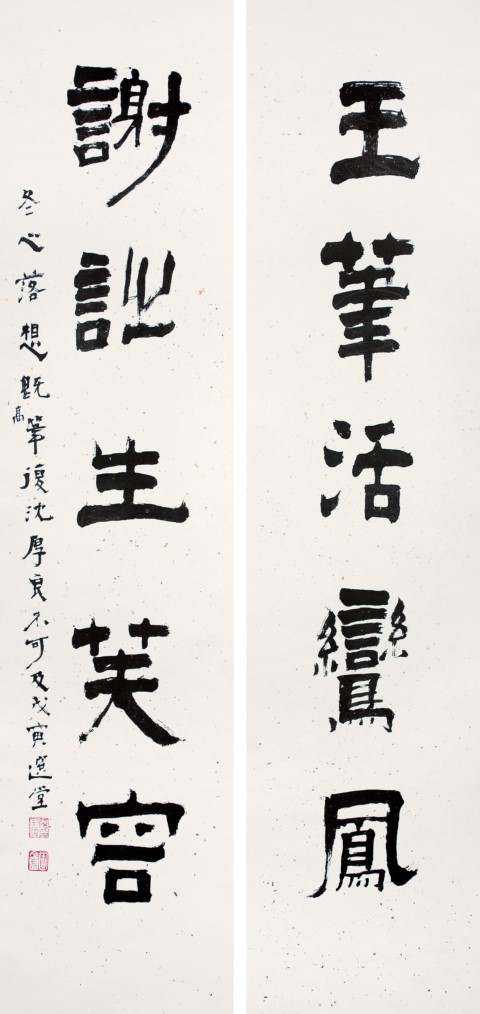 王筆活鸞鳳
謝詩生芙容
冬心落想既高筆復沈厚良不可及戊寅選堂